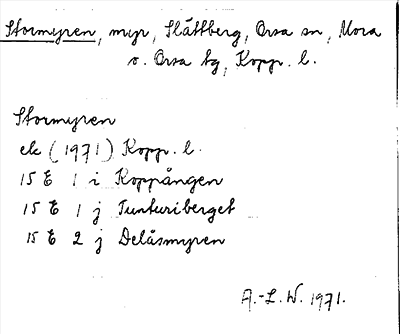 Stormyren, myr, Slättberg, Orsa sn, Mora
o. Orsa tg, Kopp. l.
Stormyren
ek (1971) Kopp. l.
15 E 1 i Koppången
15 E 1 j Tunturiberget
15 E 2 j Delåsmyren
A.-L. W. 1971.